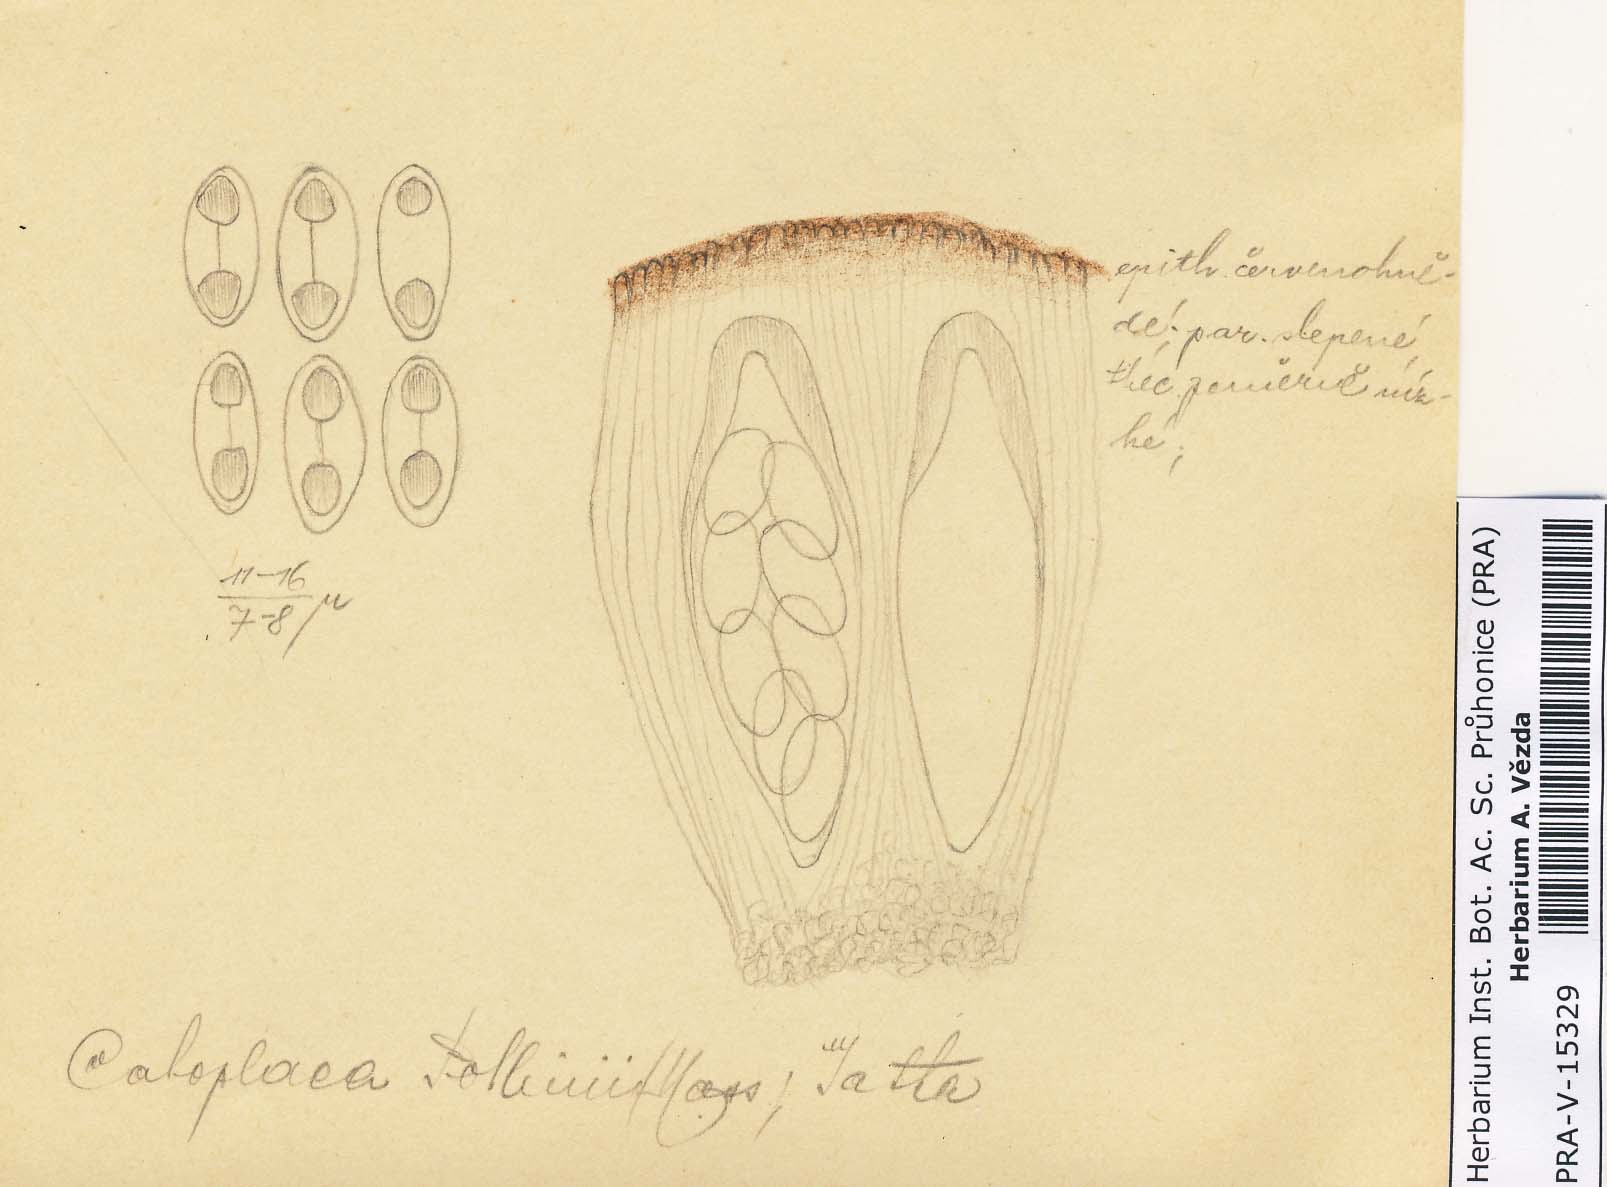 epith. červenohně-
dé; par. slepené,
théc. poměrně níz-
ké;
11-16
7-8 μ
Caloplaca Pollinii (Mass) Jatta
Herbarium Inst. Bot. Ac. Sc. Průhonice (PRA)
Herbarium A. Vězda
PRA-V-15329